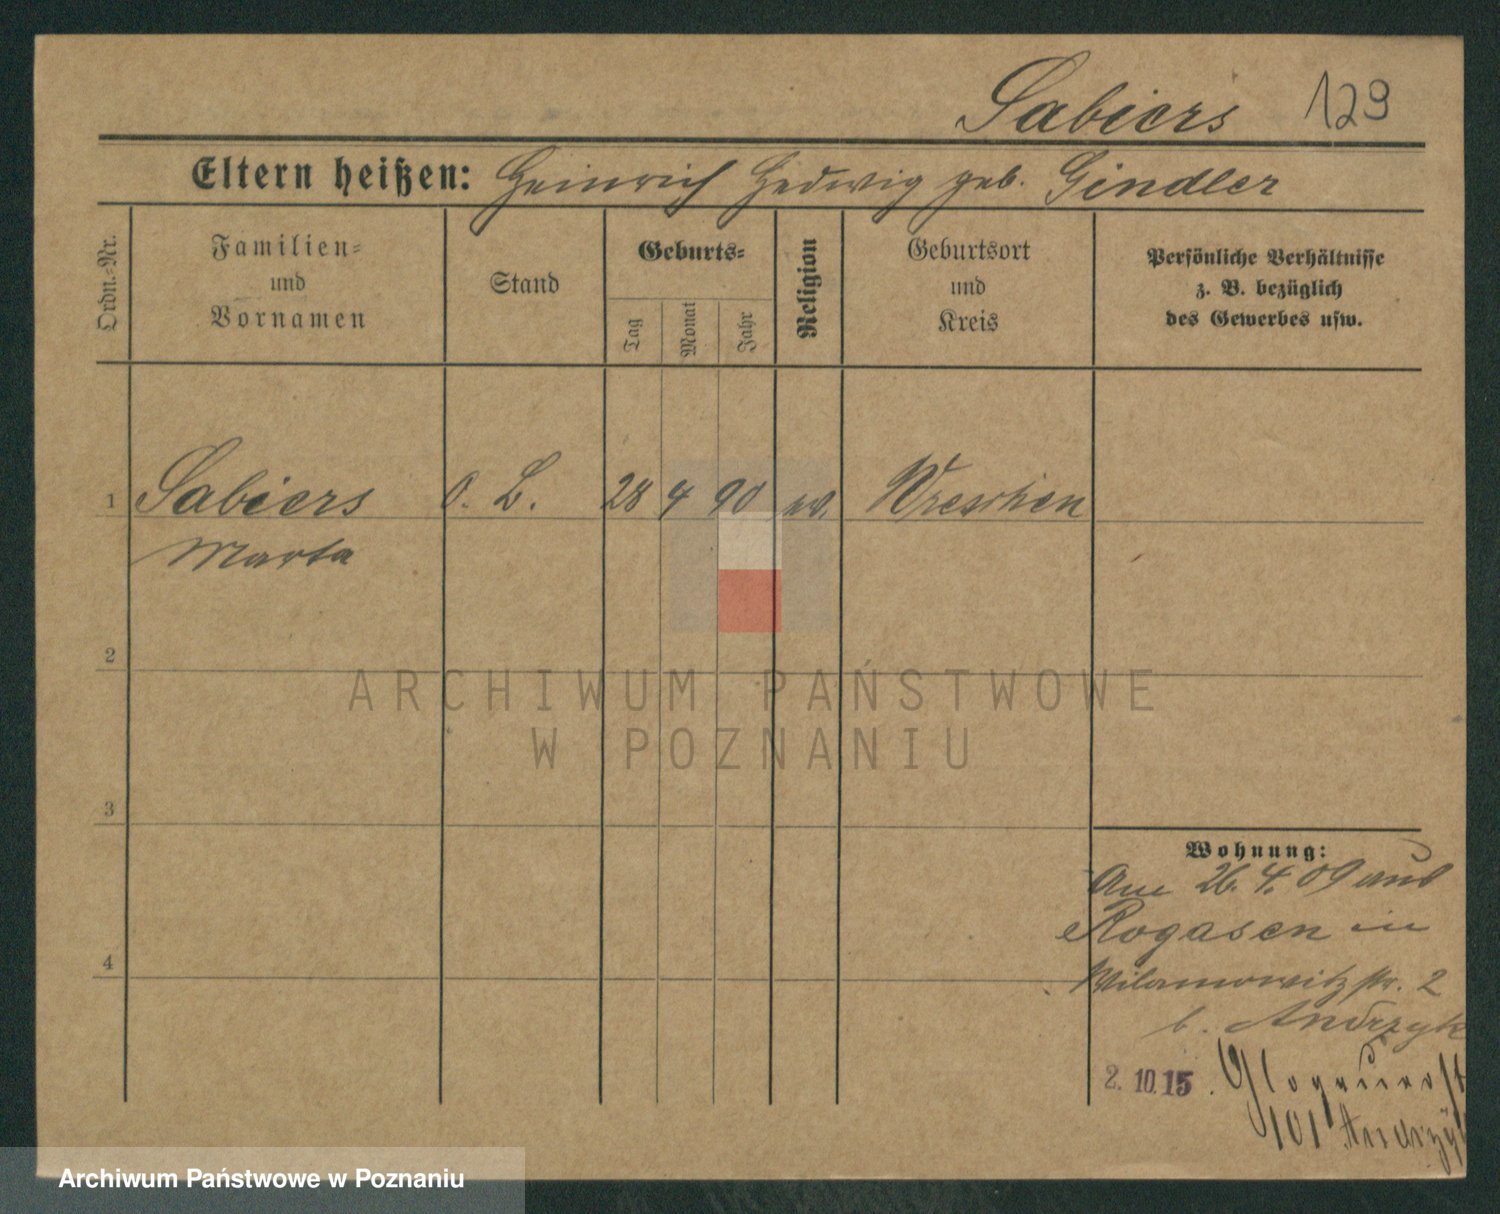 Sabiers 129
Eltern heißen: Heinrich Hedwig geb. Gindler
Ordn.-Nr.
Familien-
und
Vornamen
Stand
Geburts-
Tag
Monat
Jahr
Religion
Geburtsort
und
Kreis
Persönliche Verhältnisse
z. B. bezüglich
des Gewerbes usw.
1 Sabiers O. L. 28 4 90 ev. Wreschen
Marta
2
ARCHIWUM PAŃSTWOWE
W POZNANIU
3
Wohnung:
Am 26. 4. 09 aus
Rogasen in
Wilamowitzstr. 2
4
b. Andrzyk
2. 10. 15.
101 Andrzy
Archiwum Państwowe w Poznaniu